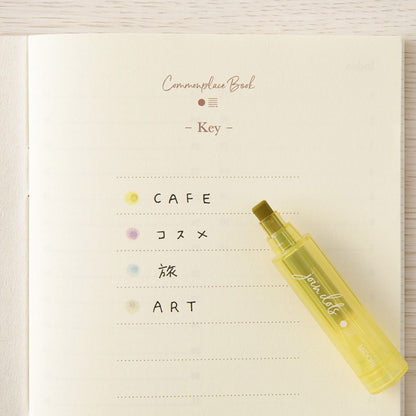 Commonplace Book
– Key –
CAFE
コスメ
旅
ART
join dots